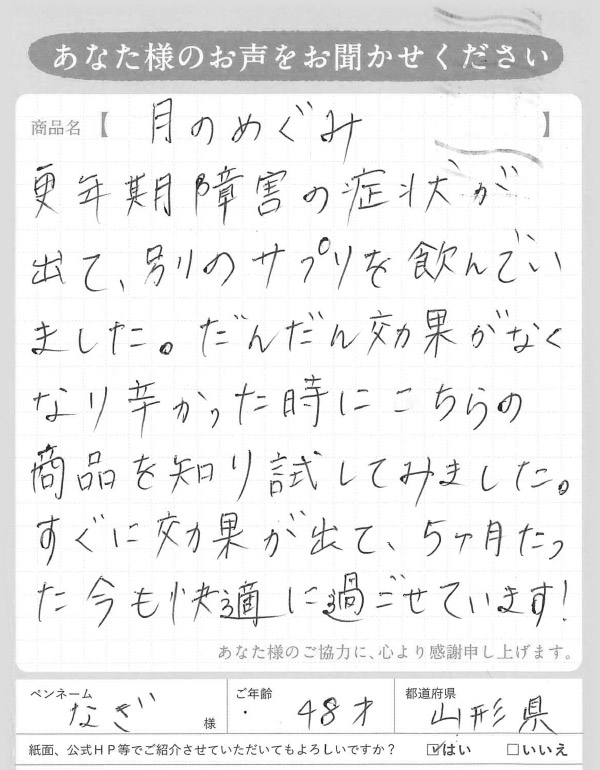 あなた様のお声をお聞かせください
商品名【 月のめぐみ 】
更年期障害の症状が
出て、別のサプリを飲んでい
ました。だんだん効果がなく
なり辛かった時にこちらの
商品を知り試してみました。
すぐに効果が出て、5ヶ月たっ
た今も快適に過ごせています!
あなた様のご協力に、心より感謝申し上げます。
ペンネーム なぎ 様 ご年齢 48才 都道府県 山形県
紙面、公式HP等でご紹介させていただいてもよろしいですか? ☑はい □いいえ